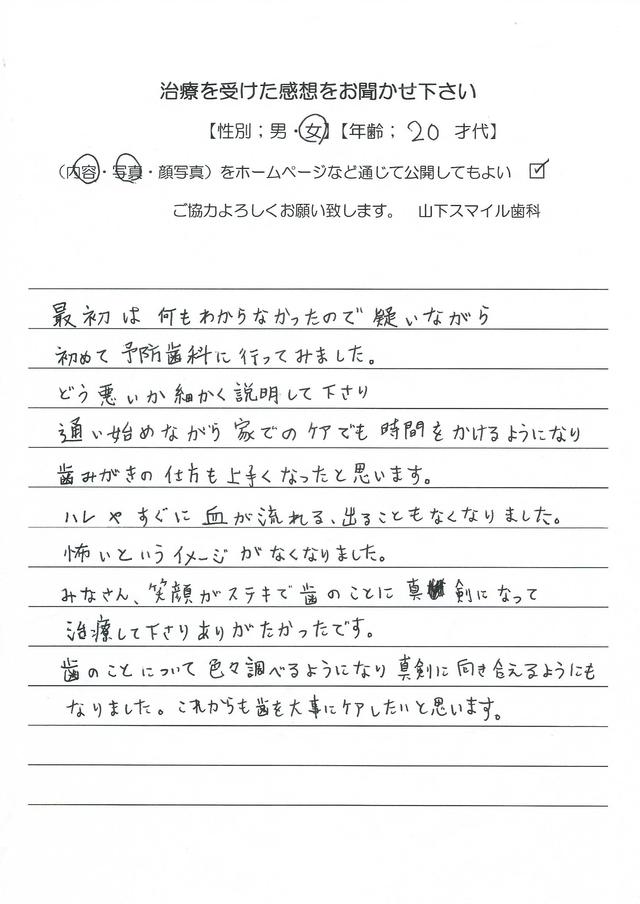 治療を受けた感想をお聞かせ下さい
【性別；男・女】【年齢；20 才代】
（内容・写真・顔写真）をホームページなど通じて公開してもよい ☑
ご協力よろしくお願い致します。 山下スマイル歯科
最初は何もわからなかったので疑いながら
初めて予防歯科に行ってみました。
どう悪いか細かく説明して下さり
通い始めながら家でのケアでも時間をかけるようになり
歯みがきの仕方も上手くなったと思います。
ハレやすぐに血が流れる、出ることもなくなりました。
怖いというイメージがなくなりました。
みなさん、笑顔がステキで歯のことに真剣になって
治療して下さりありがたかったです。
歯のことについて色々調べるようになり真剣に向き合えるようにも
なりました。これからも歯を大事にケアしたいと思います。